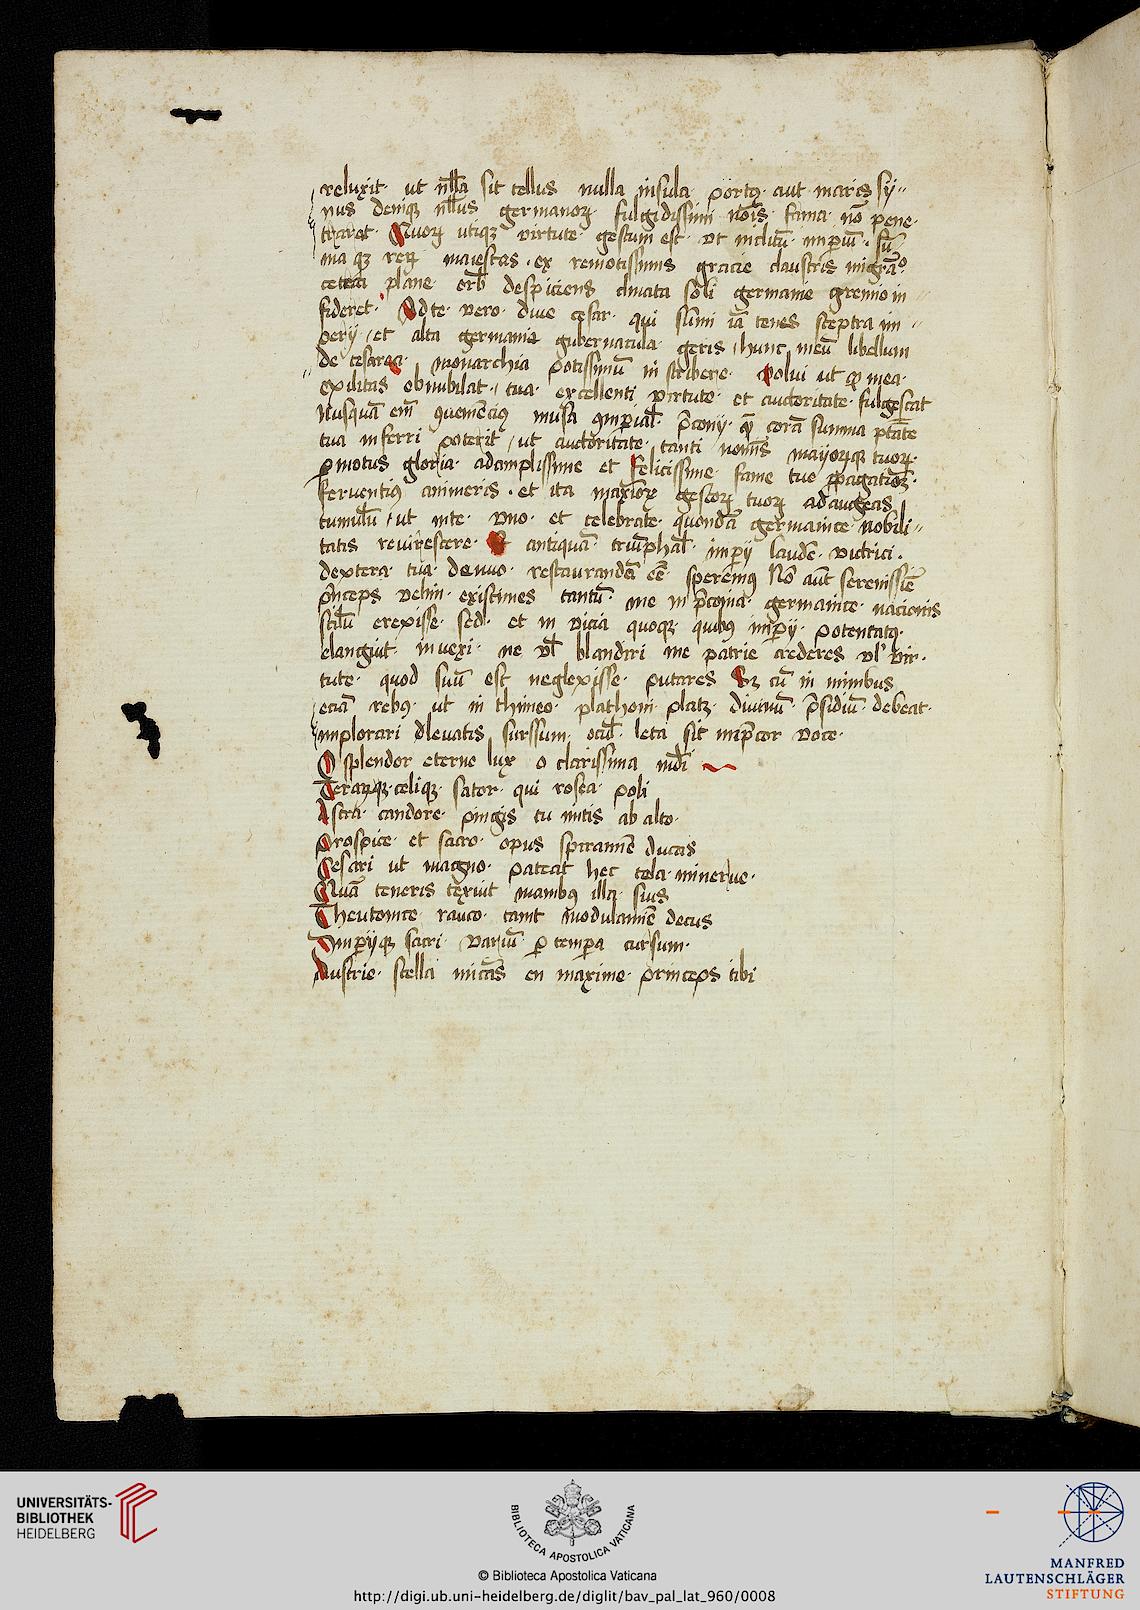 reluxit· ut nlla sit tellus nulla insula portꝯ· aut maris sy˶
nus deniqꝫ nllus germanoꝝ fulgidissimi nois· fama· nō pene·
traret· Quoꝝ utiqꝫ virtute· gestum est· vt inclitū· imꝑiū· sū
ma qꝫ reꝝ maiestas· ex remotissimis gracie claustris migrās
cetera plane orbis despiciens climata soli germanie gremio in
sideret· Ad te· vero· diue cesar· qui sūmi iā tenes sceptra im˶
perij· et alta germanie gubernacula· geris, hunc meū libellum
de cesarea· monarchia potissimū in scribere· volui ut qđ mea·
exilitas obnubilat· tua· excellenti virtute· et auctoritate· fulgescat
Nusquā em̄ musa p̄conij· qꝫ corā summa ptāte
tua inferri poterit, ut auctoritate· tanti nomīs mayoꝝqꝫ tuoꝝ·
ꝓmotus gloria· ad amplissime et felicissime· fame tue ꝓpagatioꝫ·
feruentiꝯ animeris· et ita maxioꝝ gestoꝝ tuoꝝ adaugeas
tumulū, ut in te· vno· et celebrate· quondā germanice nobili˶
tatis reuirescere· Et antiquā· triūphal· imperij laudē· victrici·
dextera· tua· denuo· restaurandā eē· speremꝯ Nō aūt serenissīe
princeps velim· existimes tantū· me in p̄conia· germanice· nacionis
stilū erexisse· sed· et in vicia quoqꝫ· quibꝯ imperij· potentatꝯ·
elanguit inuexi· ne vl blandiri me patrie crederes vl' vir·
tute· quod suū est neglexisse· putares Sꝫ cū in minibus
eciā rebꝯ· ut in thimeo· plathoni platꝫ· diuinū· p̄sidiū· debeat·
implorari eleuatis sursum· ocul· leta sit imp̄cor voce·
O splendor eterne lux o clarissima mūdi
Terraꝝqꝫ· celiqꝫ· sator· qui rosea· poli
Astra· candore· pingis tu mitis ab alto·
Prospice· et sacro· opus spiramīe ducas
Cesari ut magno· pateat hec tela· minerue·
Quā teneris texuit manibꝯ illa· suis
Theutonice rauco· canit modulamīe decus
Imperijqꝫ sacri· variū· ꝑ tempora cursum·
Austrie· stella micās en maxime· princeps tibi
UNIVERSITÄTS-
BIBLIOTHEK
HEIDELBERG
BIBLIOTECA APOSTOLICA VATICANA
© Biblioteca Apostolica Vaticana
http://digi.ub.uni-heidelberg.de/diglit/bav_pal_lat_960/0008
MANFRED
LAUTENSCHLÄGER
STIFTUNG